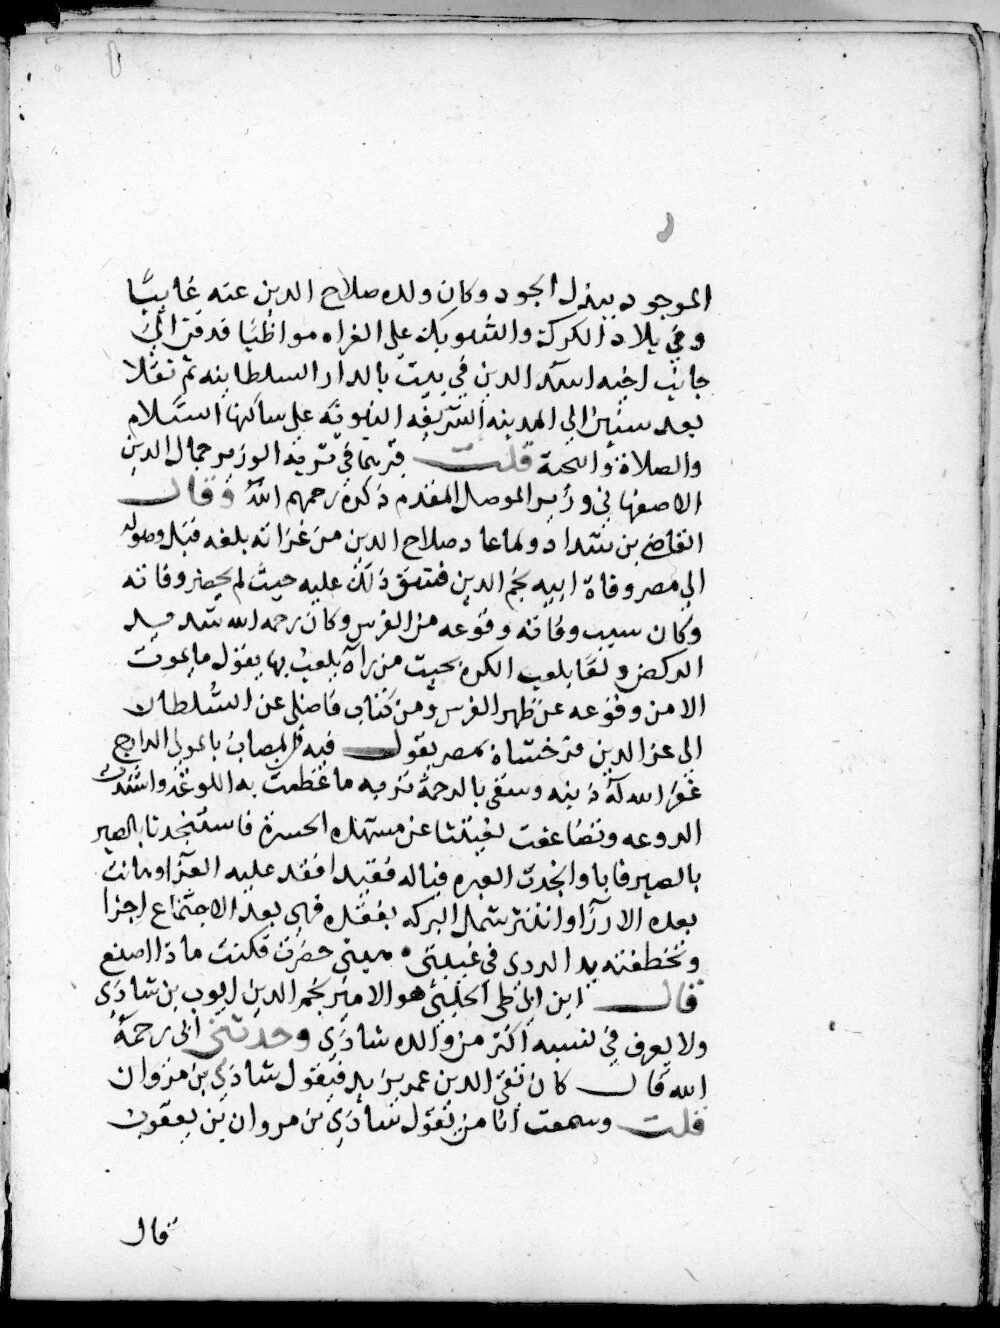 الموجود ببذل الجود وكان ولده صلاح الدين عنه غايبًا
وفي بلاد الكرك والشوبك على الغزاه مواظبًا فدفن الي
جانب اخيه اسد الدين في بيت بالدار السلطانيه ثم نقلا
بعد سنين الي المدينه الشريفه النبويه على ساكنها السلام
والصلاة والتحية قلت قبرهما في تربة الوزير جمال الدين
الاصفهاني وزير الموصل المقدم ذكره رحمهم الله وقال
القاضي بن شداد ولما عاد صلاح الدين من غزاته بلغه قبل وصوله
الي مصر وفاة ابيه نجم الدين فشق ذلك عليه حيث لم يحضر وفاته
وكان سبب وفاته وقوعه من الفرس وكان رحمه الله شديد
الركض ولعًا بلعب الكره بحيث من رآه يلعب بها يقول ما يموت
الا من وقوعه عن ظهر الفرس ومن كتاب فاضلي عن السلطان
الي عز الدين فرخشاه بمصر يقول فيه المصاب بالمولى الدارج
غفر الله له ذنبه وسقى بالرحمة تربه ما عظمت به اللوعه واشتدت
الروعه وتضاعفت لغيبتنا عن مشهده الحسرة فاستنجدنا بالصبر
بالصبر فابا وانجدت العبره فياله فقيدا فقد عليه العزا وهانت
بعده الارزا وانتثر شمل البركه بفقده فهي بعد الاجتماع اجزا
وتخطفته يد الردى في غيبتي هبني حضرت فكنت ماذا اصنع
قال ابن ابي طي الحلبي هو الامير نجم الدين ايوب بن شاذي
ولا يعرف في نسبه اكثر من والده شاذي وحدثني ابي رحمة
الله قال كان تقي الدين عمر يزيد فيقول شاذي بن مروان
قلت وسمعت انا من يقول شاذي بن مروان بن يعقوب
قال